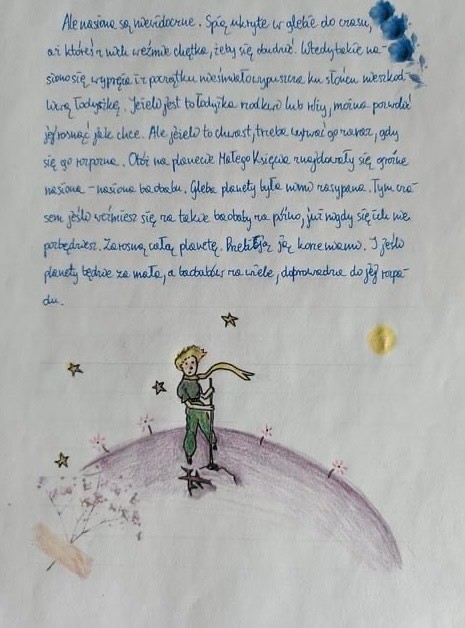 Ale nasiona są niewidoczne. Śpią ukryte w glebie do czasu,
aż któreś z nich weźmie chętka, żeby się obudzić. Wtedy takie na-
sionko się wypręża i z początku nieśmiało wypuszcza ku słońcu nieszkod-
liwą łodyżkę. Jeżeli jest to łodyżka rzodkwi lub róży, można pozwolić
jej rosnąć jak chce. Ale jeżeli to chwast, trzeba wyrwać go zaraz, gdy
się go rozpozna. Otóż na planecie Małego Księcia znajdowały się groźne
nasiona - nasiona baobabu. Gleba planety była nimi zasypana. Tymcza-
sem jeśli weźmiesz się za takie baobaby za późno, już nigdy się ich nie
pozbędziesz. Zarosną całą planetę. Przebiją ją korzeniami. I jeśli
planeta będzie za mała, a baobabów za wiele, doprowadzą do jej rozpa-
du.